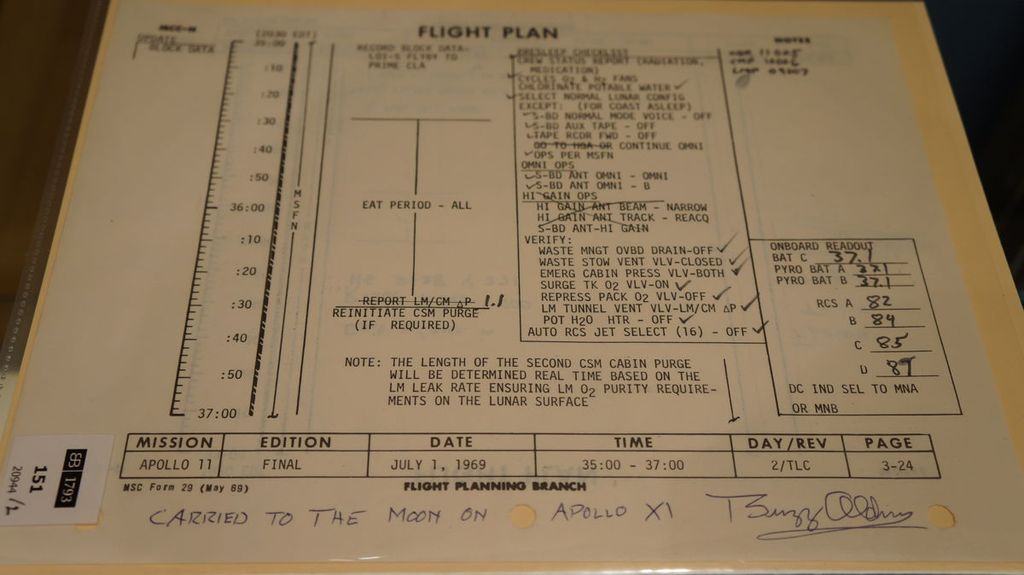 MCC-H
FLIGHT PLAN
NOTES
UPDATE
BLOCK DATA
(2030 EDT)
35:00
:10
:20
:30
:40
:50
36:00
:10
:20
:30
:40
:50
37:00
M
S
F
N
RECORD BLOCK DATA-
LOI-5 FLYBY TO
PRIME CLA
EAT PERIOD - ALL
REPORT LM/CM ΔP 1.1
REINITIATE CSM PURGE
(IF REQUIRED)
PRESLEEP CHECKLIST
CREW STATUS REPORT (RADIATION,
MEDICATION)
✓CYCLES O2 & H2 FANS
CHLORINATE POTABLE WATER ✓
✓SELECT NORMAL LUNAR CONFIG
EXCEPT: (FOR COAST ASLEEP)
✓S-BD NORMAL MODE VOICE - OFF
✓S-BD AUX TAPE - OFF
✓TAPE RCDR FWD - OFF
GO TO HGA OR CONTINUE OMNI
✓OPS PER MSFN
OMNI OPS
✓S-BD ANT OMNI - OMNI
✓S-BD ANT OMNI - B
HI GAIN OPS
HI GAIN ANT BEAM - NARROW
HI GAIN ANT TRACK - REACQ
S-BD ANT-HI GAIN
VERIFY:
WASTE MNGT OVBD DRAIN-OFF ✓
WASTE STOW VENT VLV-CLOSED ✓
EMERG CABIN PRESS VLV-BOTH ✓
SURGE TK O2 VLV-ON ✓
REPRESS PACK O2 VLV-OFF ✓
LM TUNNEL VENT VLV-LM/CM ΔP ✓
POT H2O HTR - OFF ✓
AUTO RCS JET SELECT (16) - OFF ✓
ONBOARD READOUT
BAT C 37.1
PYRO BAT A 37.1
PYRO BAT B 37.1
RCS A 82
B 84
C 85
D 87
DC IND SEL TO MNA
OR MNB
NOTE: THE LENGTH OF THE SECOND CSM CABIN PURGE
WILL BE DETERMINED REAL TIME BASED ON THE
LM LEAK RATE ENSURING LM O2 PURITY REQUIRE-
MENTS ON THE LUNAR SURFACE
MISSION EDITION DATE TIME DAY/REV PAGE
APOLLO 11 FINAL JULY 1, 1969 35:00 - 37:00 2/TLC 3-24
MSC Form 29 (May 69)
FLIGHT PLANNING BRANCH
CARRIED TO THE MOON ON APOLLO XI Buzz Aldrin
1793
151
20944 / 1